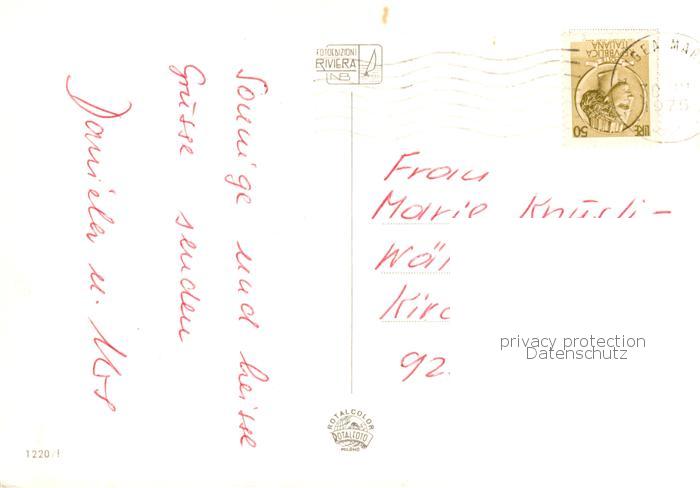 Sonnige und heisse
Grüsse senden
Daniela u. Urs
FOTOEDIZIONI
RIVIERA
NB
REPUBBLICA
ITALIANA
LIRE 50
1975
Frau
Marie Knüsli-
Wäl
Kirc
92.
privacy protection
Datenschutz
ROTALCOLOR
ROTALFOTO
MILANO